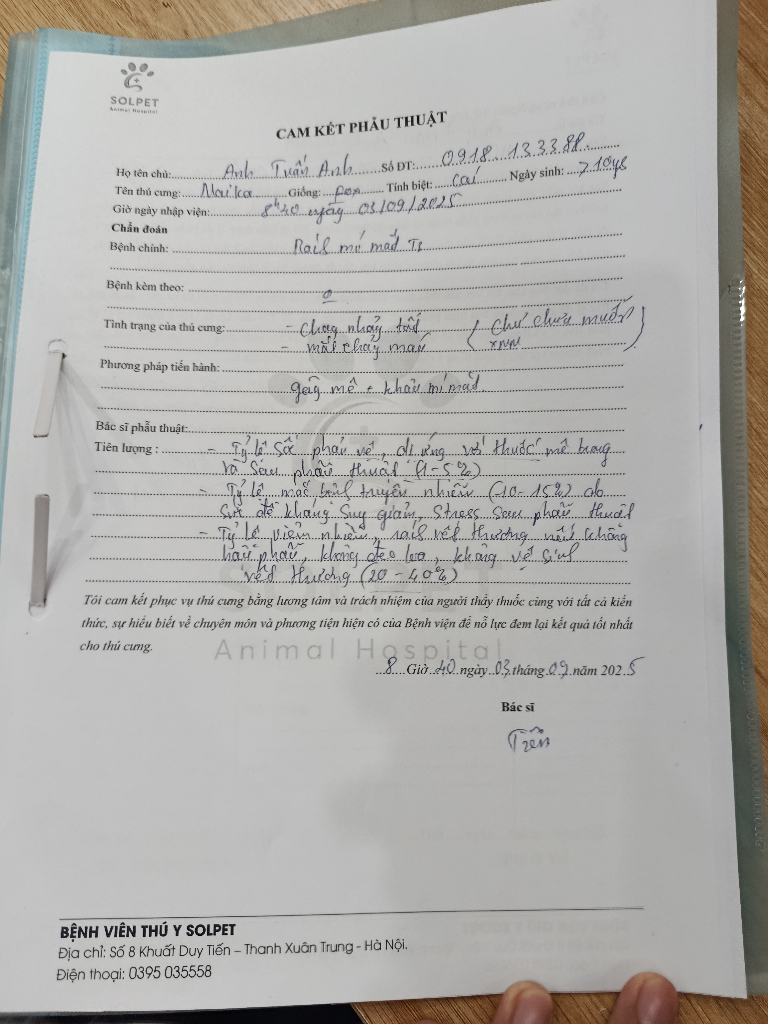 SOLPET
Animal Hospital
CAM KẾT PHẪU THUẬT
Họ tên chủ: Anh Tuấn Anh Số ĐT: 0918 133388
Tên thú cưng: Maika Giống: fox Tính biệt: cái Ngày sinh: 710ys
Giờ ngày nhập viện: 8h40 ngày 03/09/2025
Chẩn đoán
Bệnh chính: Rách mí mắt
Bệnh kèm theo: 0
Tình trạng của thú cưng: - Chạy nhảy tốt (Chủ chưa muốn
- mắt chảy máu XNM)
Phương pháp tiến hành:
gây mê + khâu mí mắt
Bác sĩ phẫu thuật:
Tiên lượng : - Tỷ lệ sốc phản vệ, dị ứng với thuốc mê trong
và sau phẫu thuật (1-5%)
- Tỷ lệ mắc bệnh truyền nhiễm (10-15%) do
sức đề kháng suy giảm, stress sau phẫu thuật
- Tỷ lệ viêm nhiễm, rách vết thương nếu không
hậu phẫu, không đeo loa, không vệ sinh
vết thương (20-40%)
Tôi cam kết phục vụ thú cưng bằng lương tâm và trách nhiệm của người thầy thuốc cùng với tất cả kiến
thức, sự hiểu biết về chuyên môn và phương tiện hiện có của Bệnh viện để nỗ lực đem lại kết quả tốt nhất
cho thú cưng.
Animal Hospital
8 Giờ 40 ngày 03 tháng 09 năm 2025
Bác sĩ
BỆNH VIÊN THÚ Y SOLPET
Địa chỉ: Số 8 Khuất Duy Tiến – Thanh Xuân Trung - Hà Nội.
Điện thoại: 0395 035558